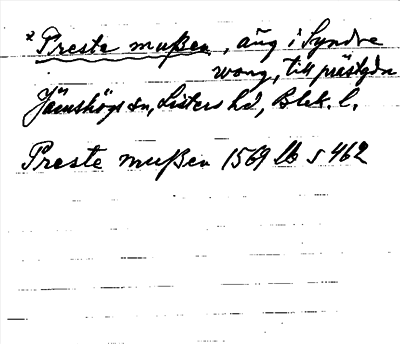 * Preste mußen, äng i Syndre
wong, till prästgdn
Jämshögs sn, Listers hd, Blek. l.
Preste mußen 1569 lb s 462